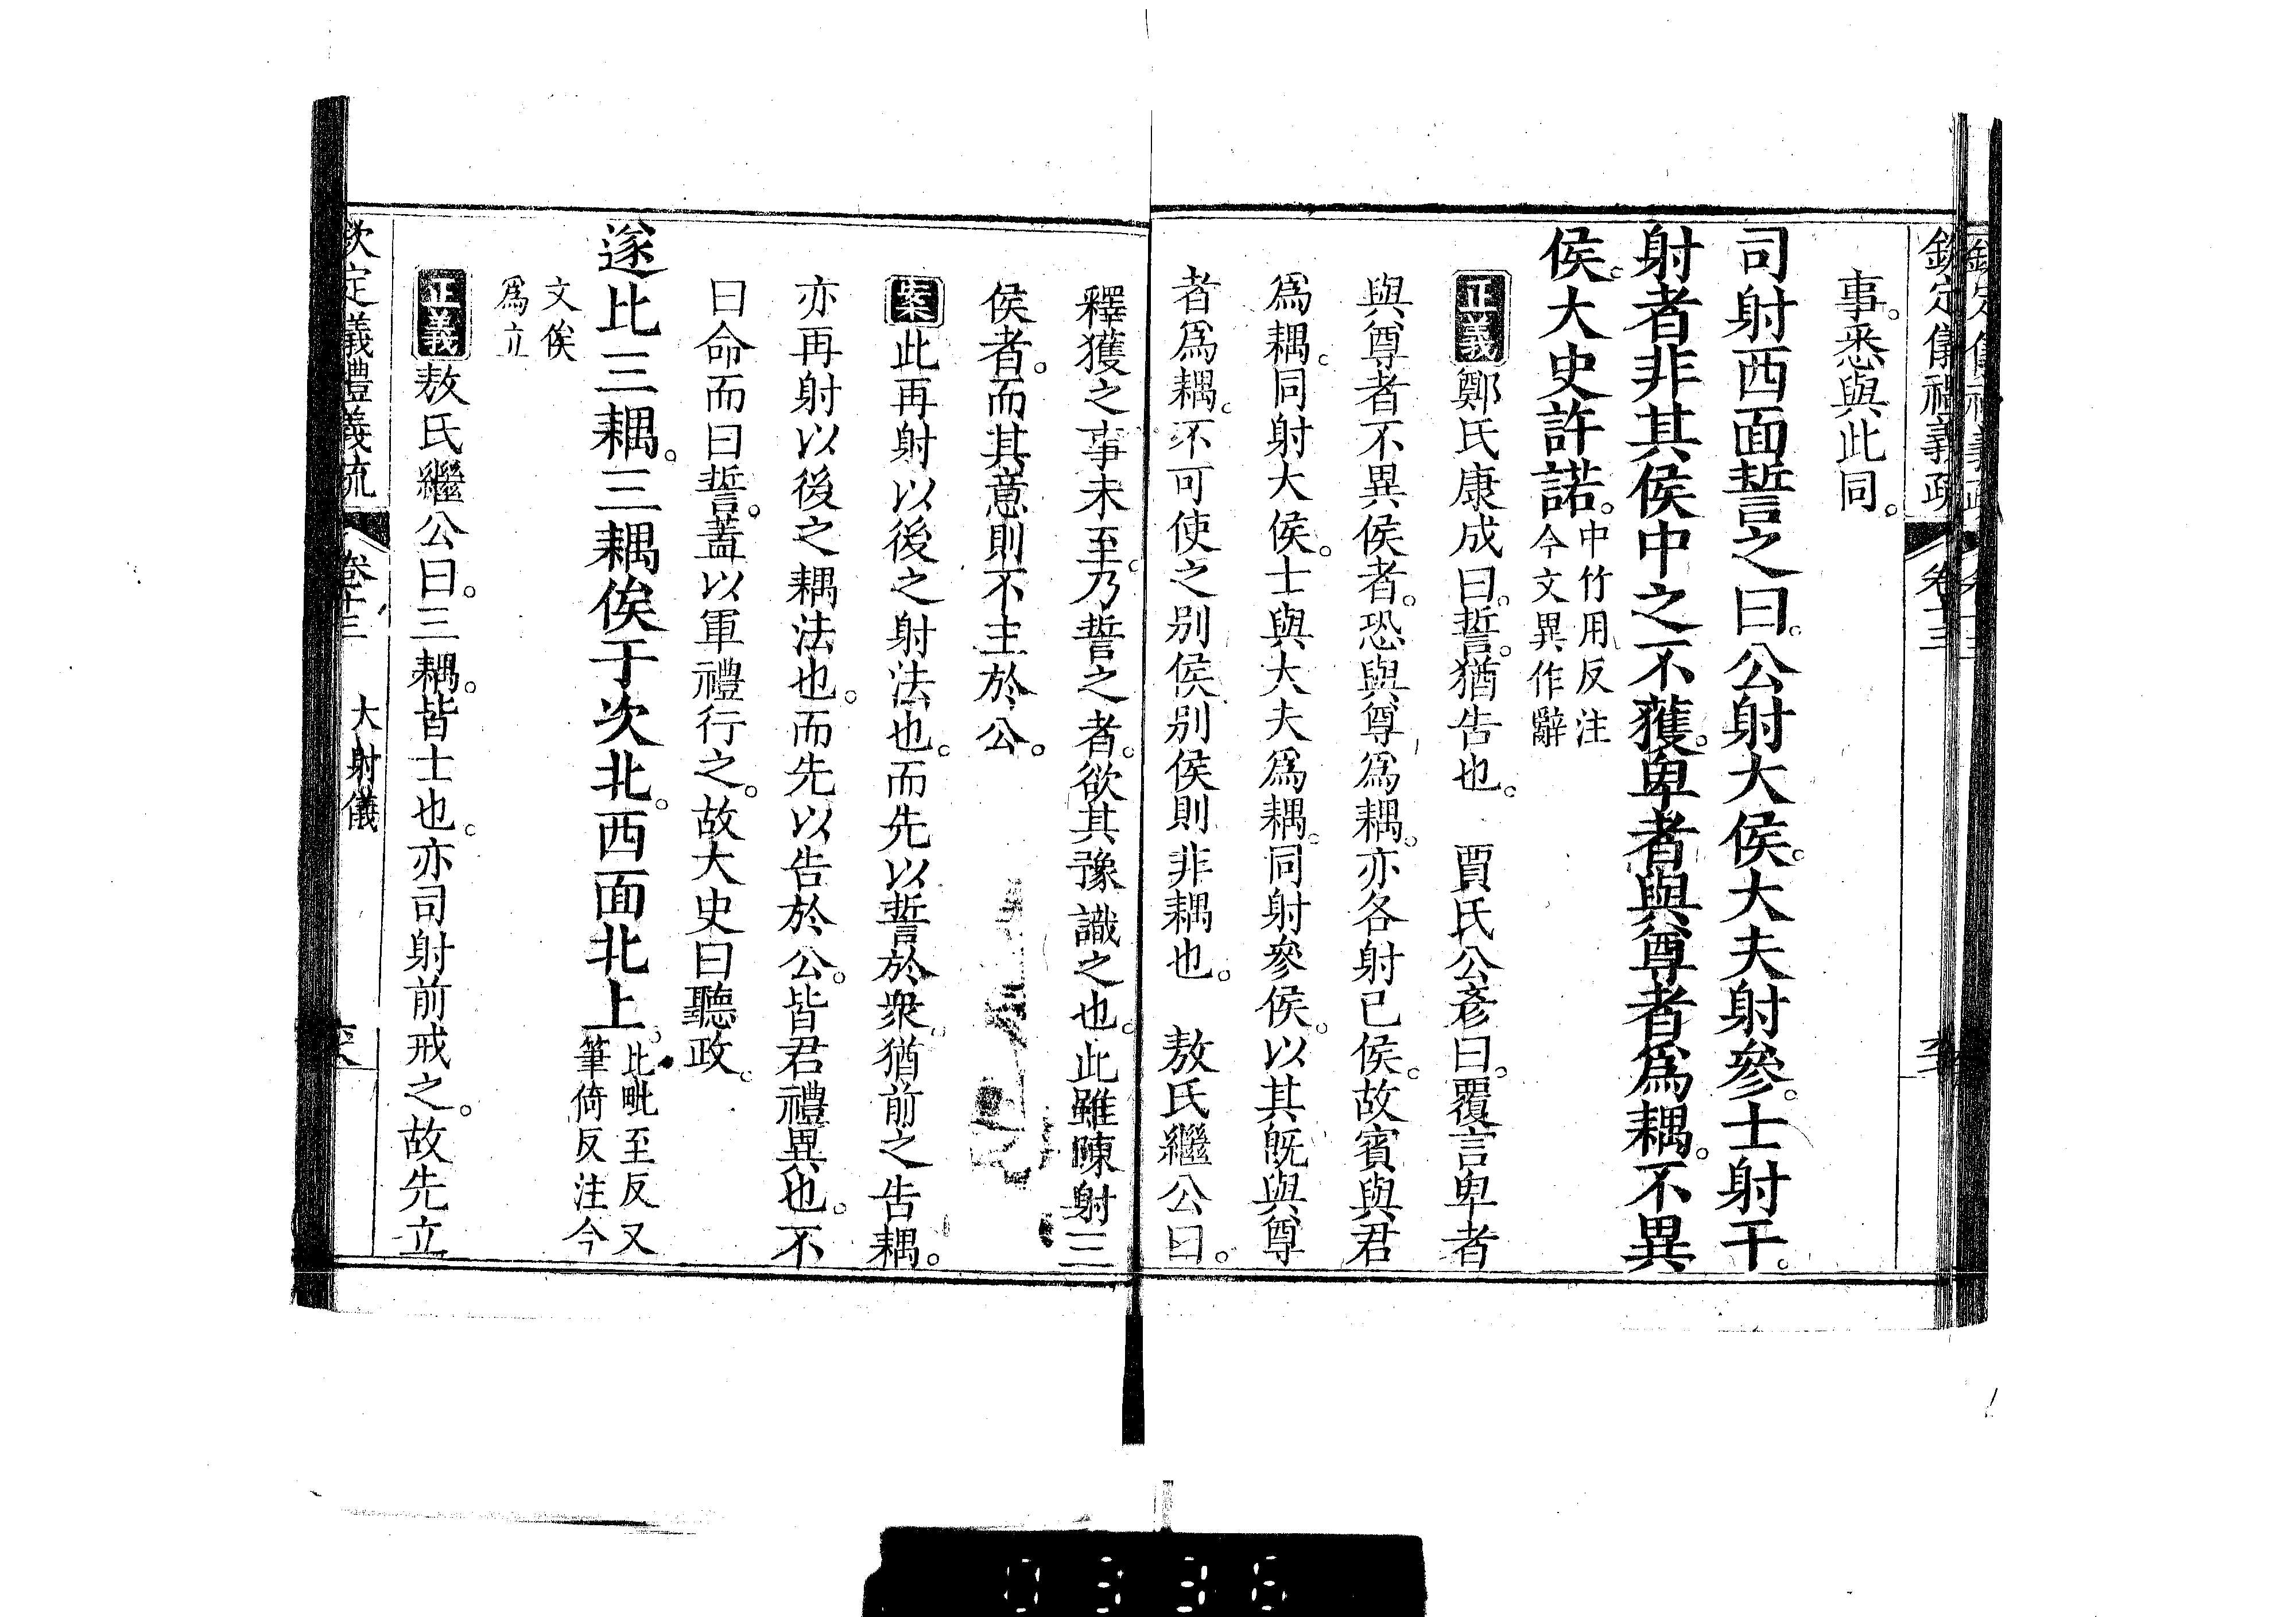 欽定儀禮義疏 卷十三
事。悉與此同。
司射西面誓之曰。公射大侯。大夫射參。士射干。
射者非其侯中之不獲。卑者與尊者爲耦。不異
侯。大史許諾。
中竹用反注
今文異作辭
正義鄭氏康成曰。誓。猶告也。 賈氏公彥曰。覆言卑者
與尊者不異侯者。恐與尊爲耦。亦各射己侯。故賓與君
爲耦。同射大侯。士與大夫爲耦。同射參侯。以其旣與尊
者爲耦。不可使之別侯別侯則非耦也。 敖氏繼公曰。
釋獲之事未至。乃誓之者。欲其豫識之也。此雖陳射三
侯者。而其意則不主於公。
案此再射以後之射法也。而先以誓於衆。猶前之告耦。
亦再射以後之耦法也。而先以告於公。皆君禮異也。不
曰命而曰誓。蓋以軍禮行之。故大史曰聽政。
遂比三耦。三耦俟于次北。西面北上。
比毗至反又
筆倚反注今
文俟
爲立
正義敖氏繼公曰。三耦。皆士也。亦司射前戒之。故先立
欽定儀禮義疏 卷十三 大射儀